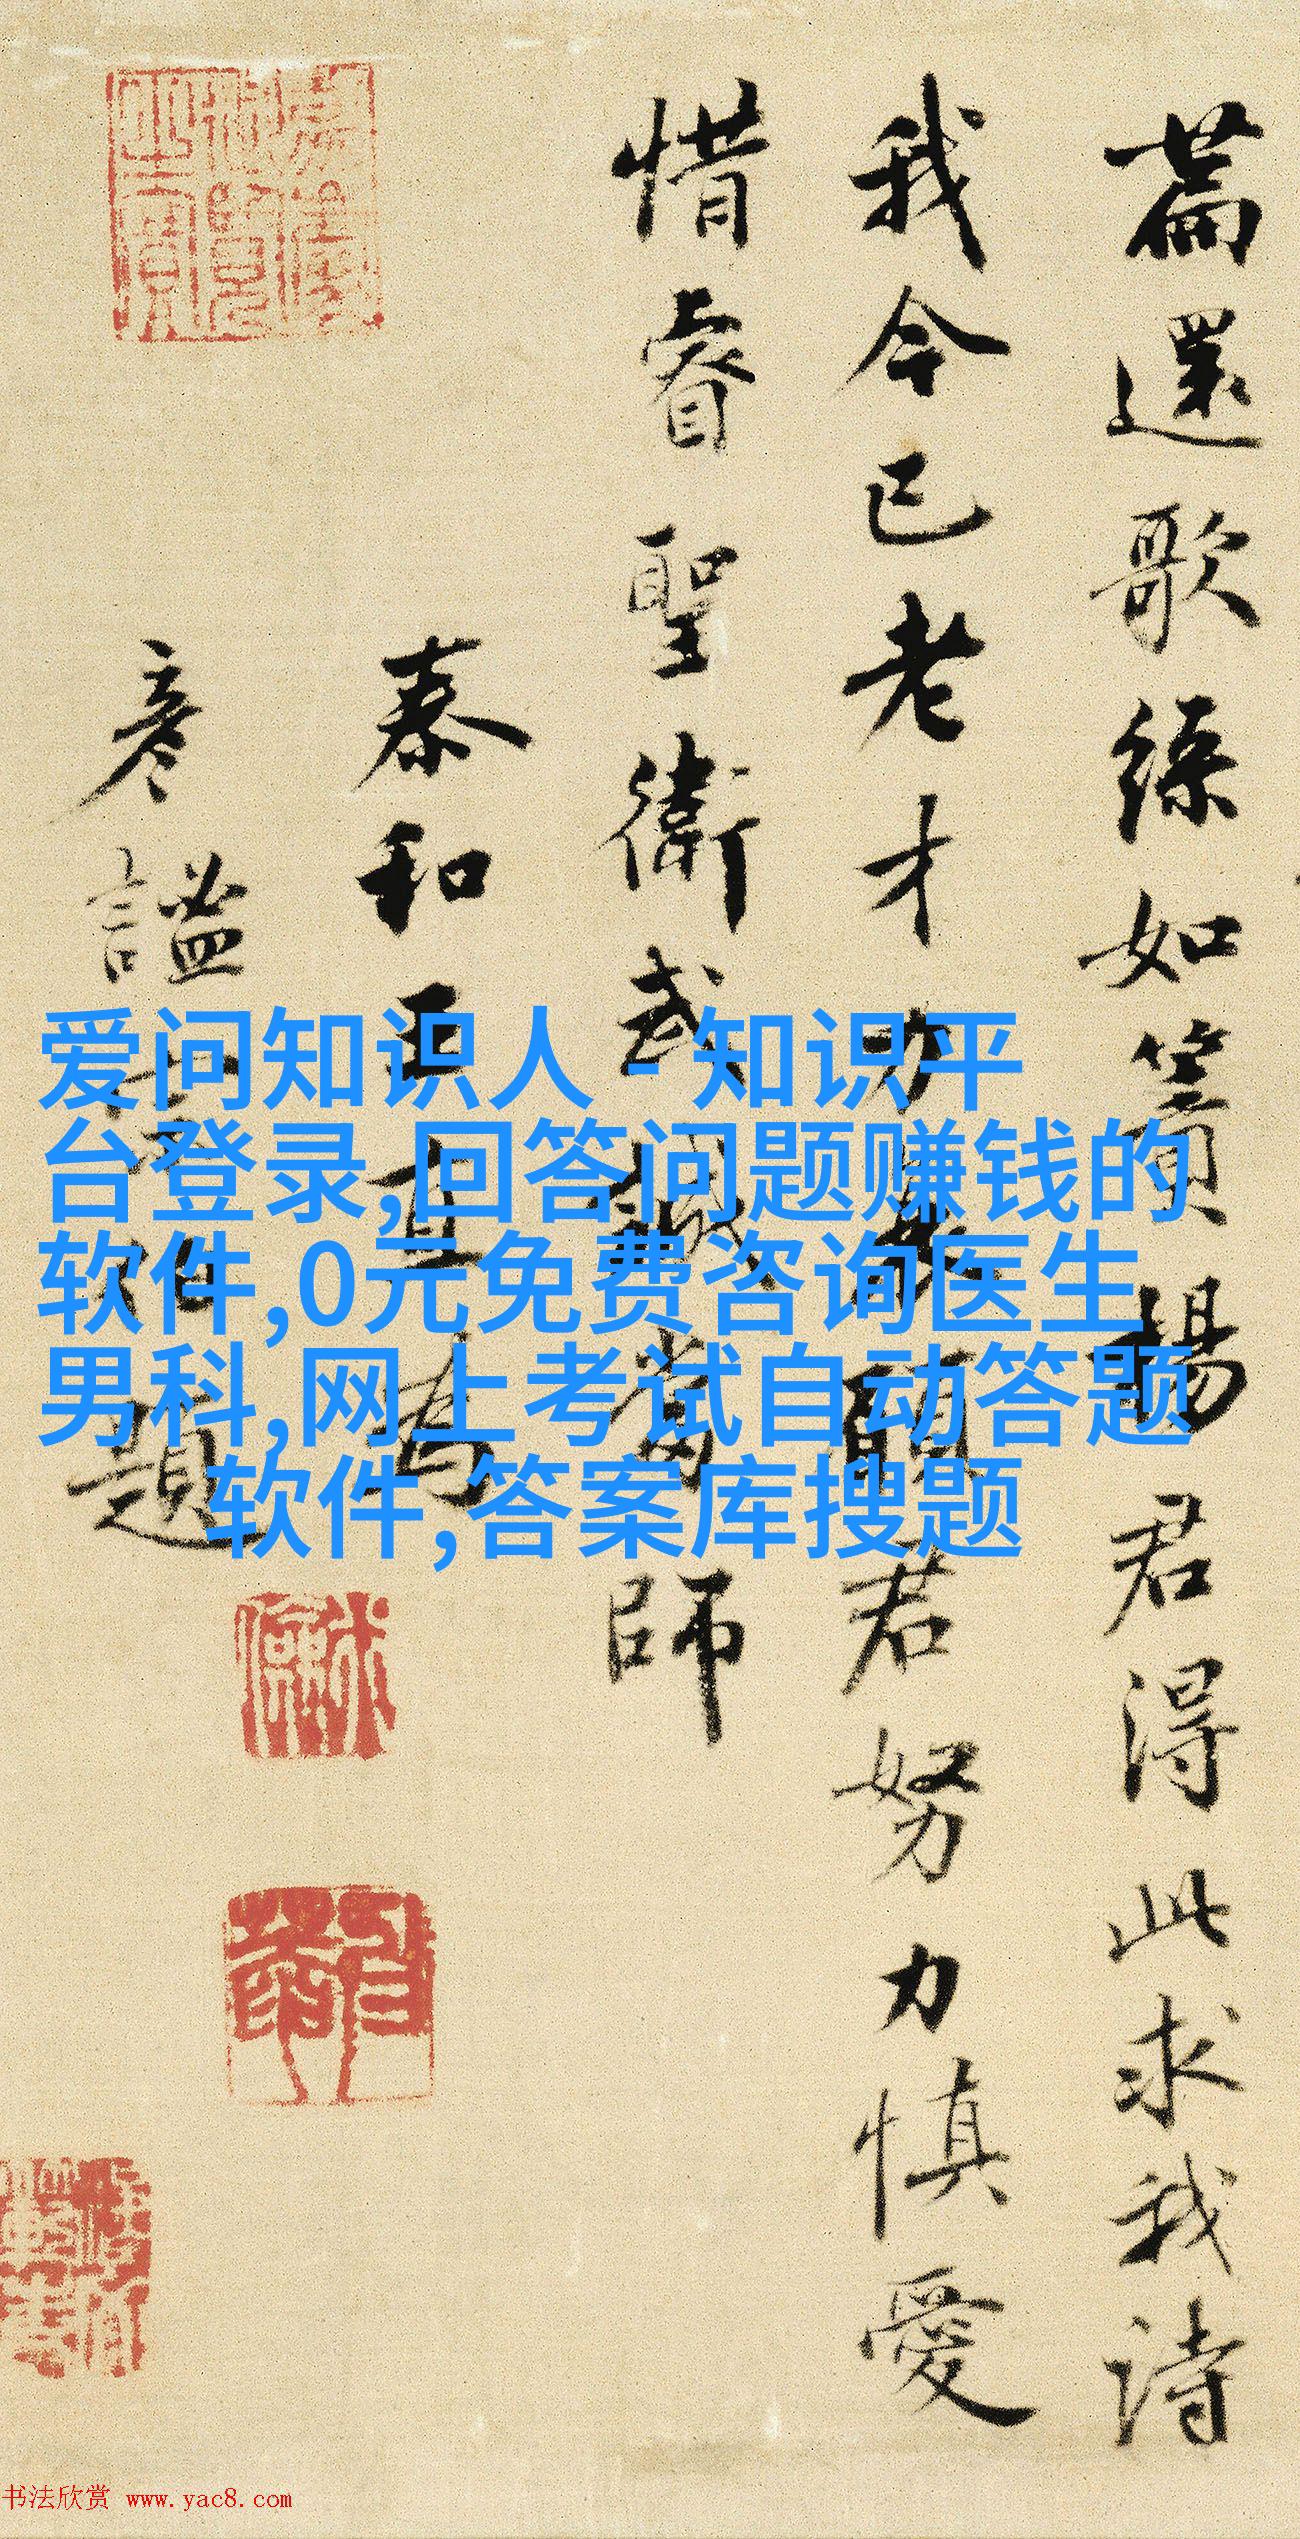 篇還歌繞如簣揚君得此求我詩
我今已老才力衰願若努力慎愛
惜睿聖衛武戒當師
泰和王直為
彥謐
題
爱问知识人 - 知识平
台登录,回答问题赚钱的
软件,0元免费咨询医生
男科,网上考试自动答题
软件,答案库搜题
书法欣赏 www.yac8.com